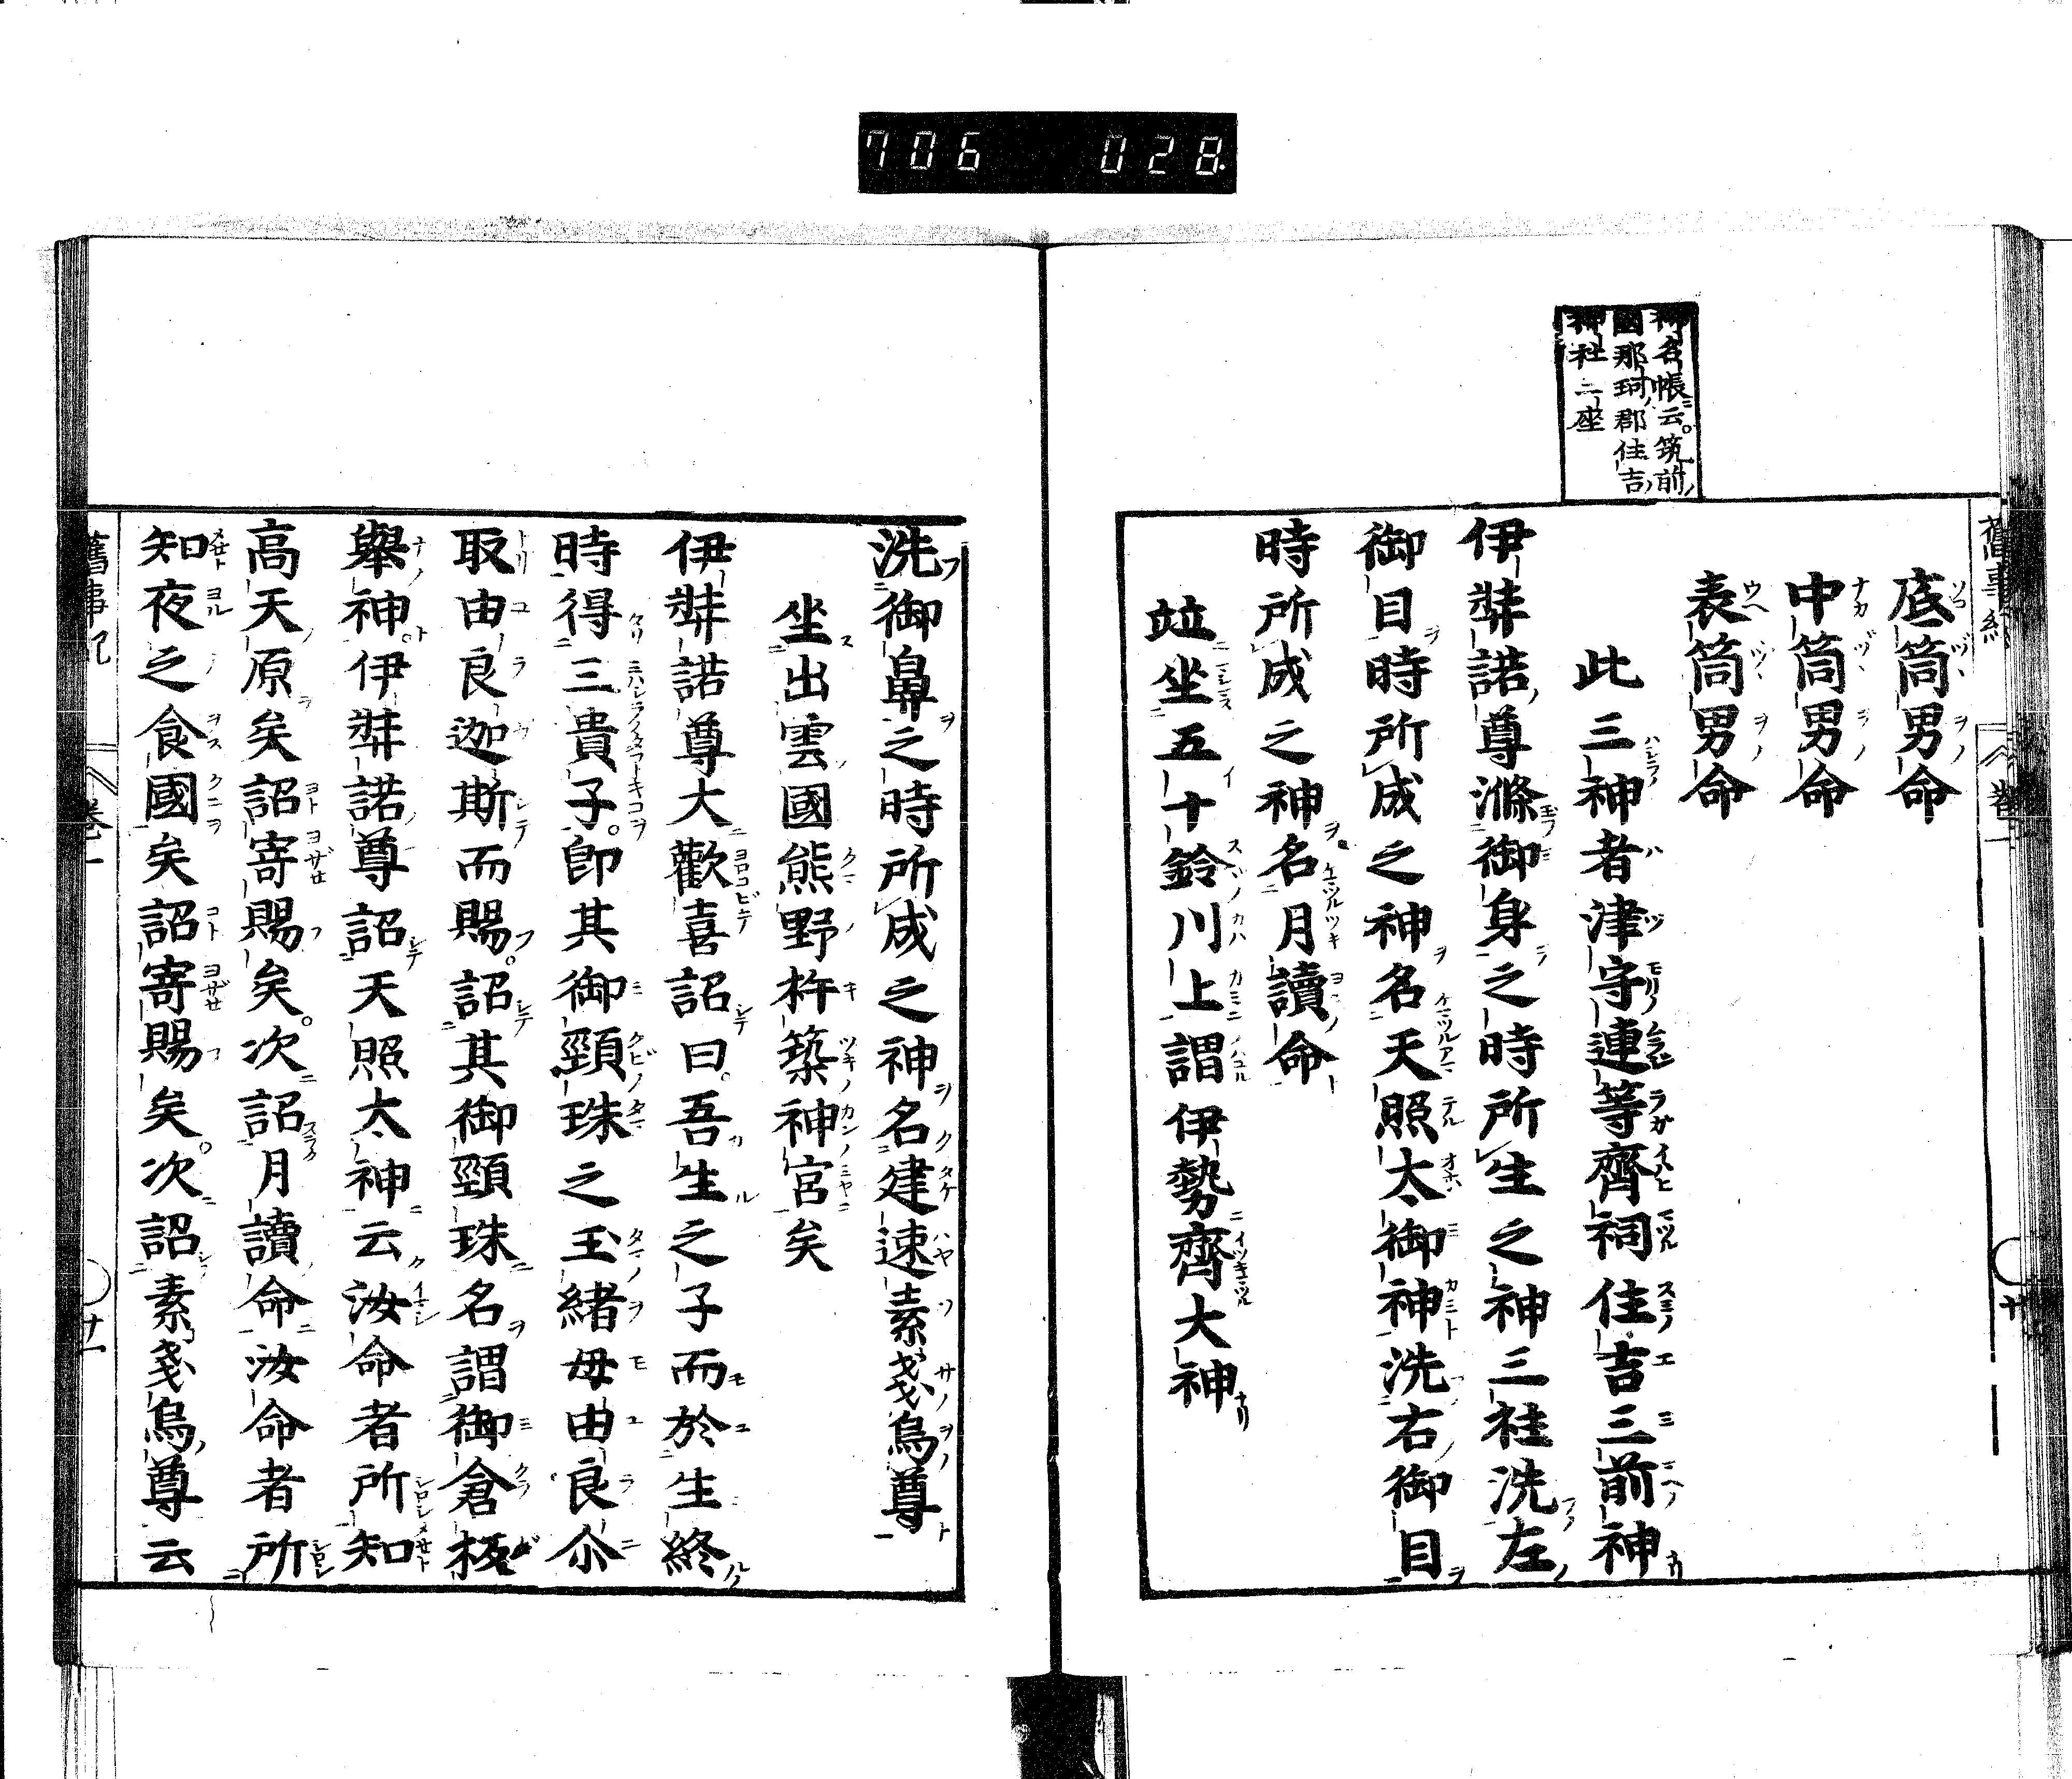 706 028
神名帳云筑前
國那珂郡住吉
神社二座
底筒男命
中筒男命
表筒男命
此三神者津守連等齊祠住吉三前神
伊弉諾尊滌御身之時所生之神三柱洗左
御目時所成之神名天照太御神洗右御目
時所成之神名月讀命
竝坐五十鈴川上謂伊勢齊大神
洗御鼻之時所成之神名建速素戔烏尊
坐出雲國熊野杵築神宮矣
伊弉諾尊大歡喜詔曰吾生之子而於生終
時得三貴子即其御頸珠之玉緒母由良尒
取由良迦斯而賜詔其御頸珠名謂御倉板
舉神伊弉諾尊詔天照太神云汝命者所知
高天原矣詔寄賜矣次詔月讀命汝命者所
知夜之食國矣詔寄賜矣次詔素戔烏尊云
舊事紀 卷一 廿一